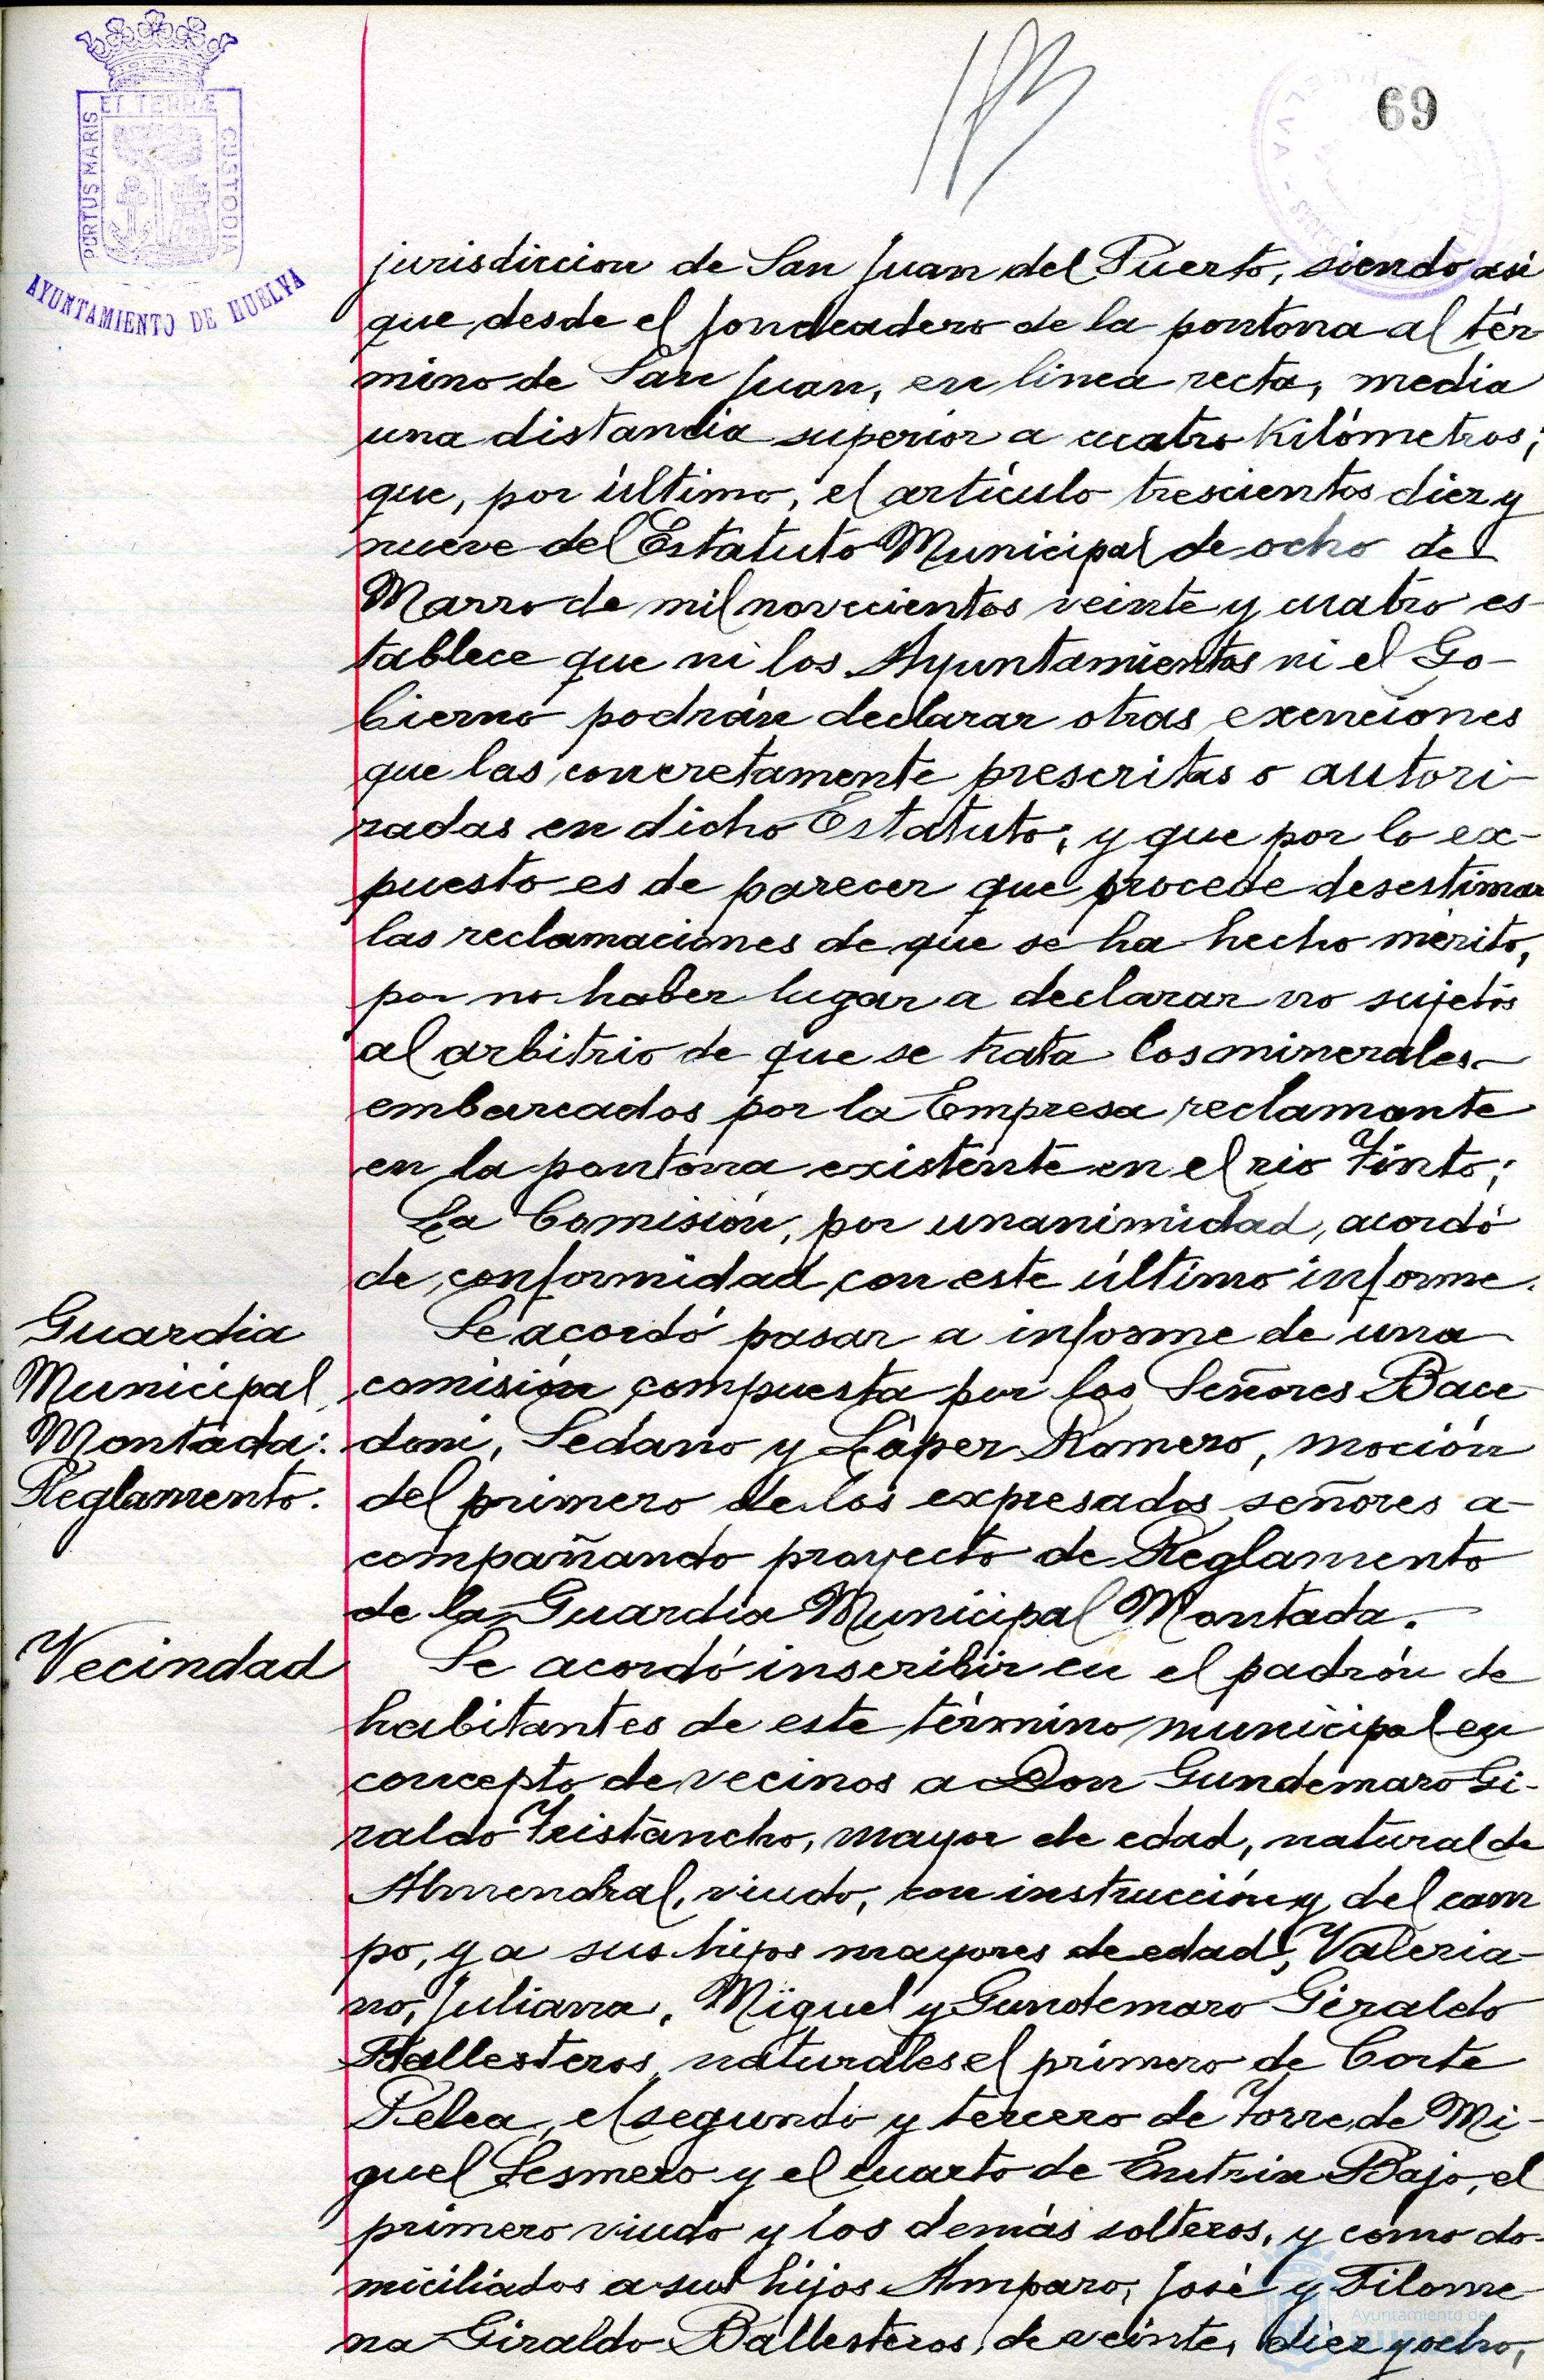 ET TERRÆ
PORTUS MARIS
CUSTODIA
AYUNTAMIENTO DE HUELVA
69
HUELVA
jurisdiccion de San Juan del Puerto, siendo asi
que desde el fondeadero de la pontona al tér-
mino de San Juan, en linea recta, media
una distancia superior a cuatro Kilómetros;
que, por último, el artículo trescientos diez y
nueve del Estatuto Municipal de ocho de
Marzo de mil novecientos veinte y cuatro es-
tablece que ni los Ayuntamientos ni el Go-
bierno podrán declarar otras exenciones
que las concretamente prescritas o autori-
zadas en dicho Estatuto; y que por lo ex-
puesto es de parecer que procede desestimar
las reclamaciones de que se ha hecho mérito,
por no haber lugar a declarar no sujetos
al arbitrio de que se trata los minerales
embarcados por la Empresa reclamante
en la pontona existente en el rio Tinto;
La Comisión, por unanimidad, acordó
de conformidad con este último informe.
Guardia
Municipal
Montada:
Reglamento.
Se acordó pasar a informe de una
comisión compuesta por los Señores Bace
doni, Sedano y López Romero, moción
del primero de los expresados señores a-
compañando proyecto de Reglamento
de la Guardia Municipal Montada.
Vecindad
Se acordó inscribir en el padrón de
habitantes de este término municipal en
concepto de vecinos a Don Gundemaro Gi-
raldo Tristancho, mayor de edad, natural de
Almendral, viudo, con instrucción y del cam
po, y a sus hijos mayores de edad, Valeria-
no, Juliana, Miguel y Gundemaro Giraldo
Ballesteros, naturales el primero de Corte
Pelea, el segundo y tercero de Torre de Mi-
guel Sesmero y el cuarto de Entrin Bajo, el
primero viudo y los demás solteros, y como do-
miciliados a sus hijos Amparo, José y Filome-
na Giraldo Ballesteros, de veinte, diez y ocho,
Ayuntamiento de
HUELVA